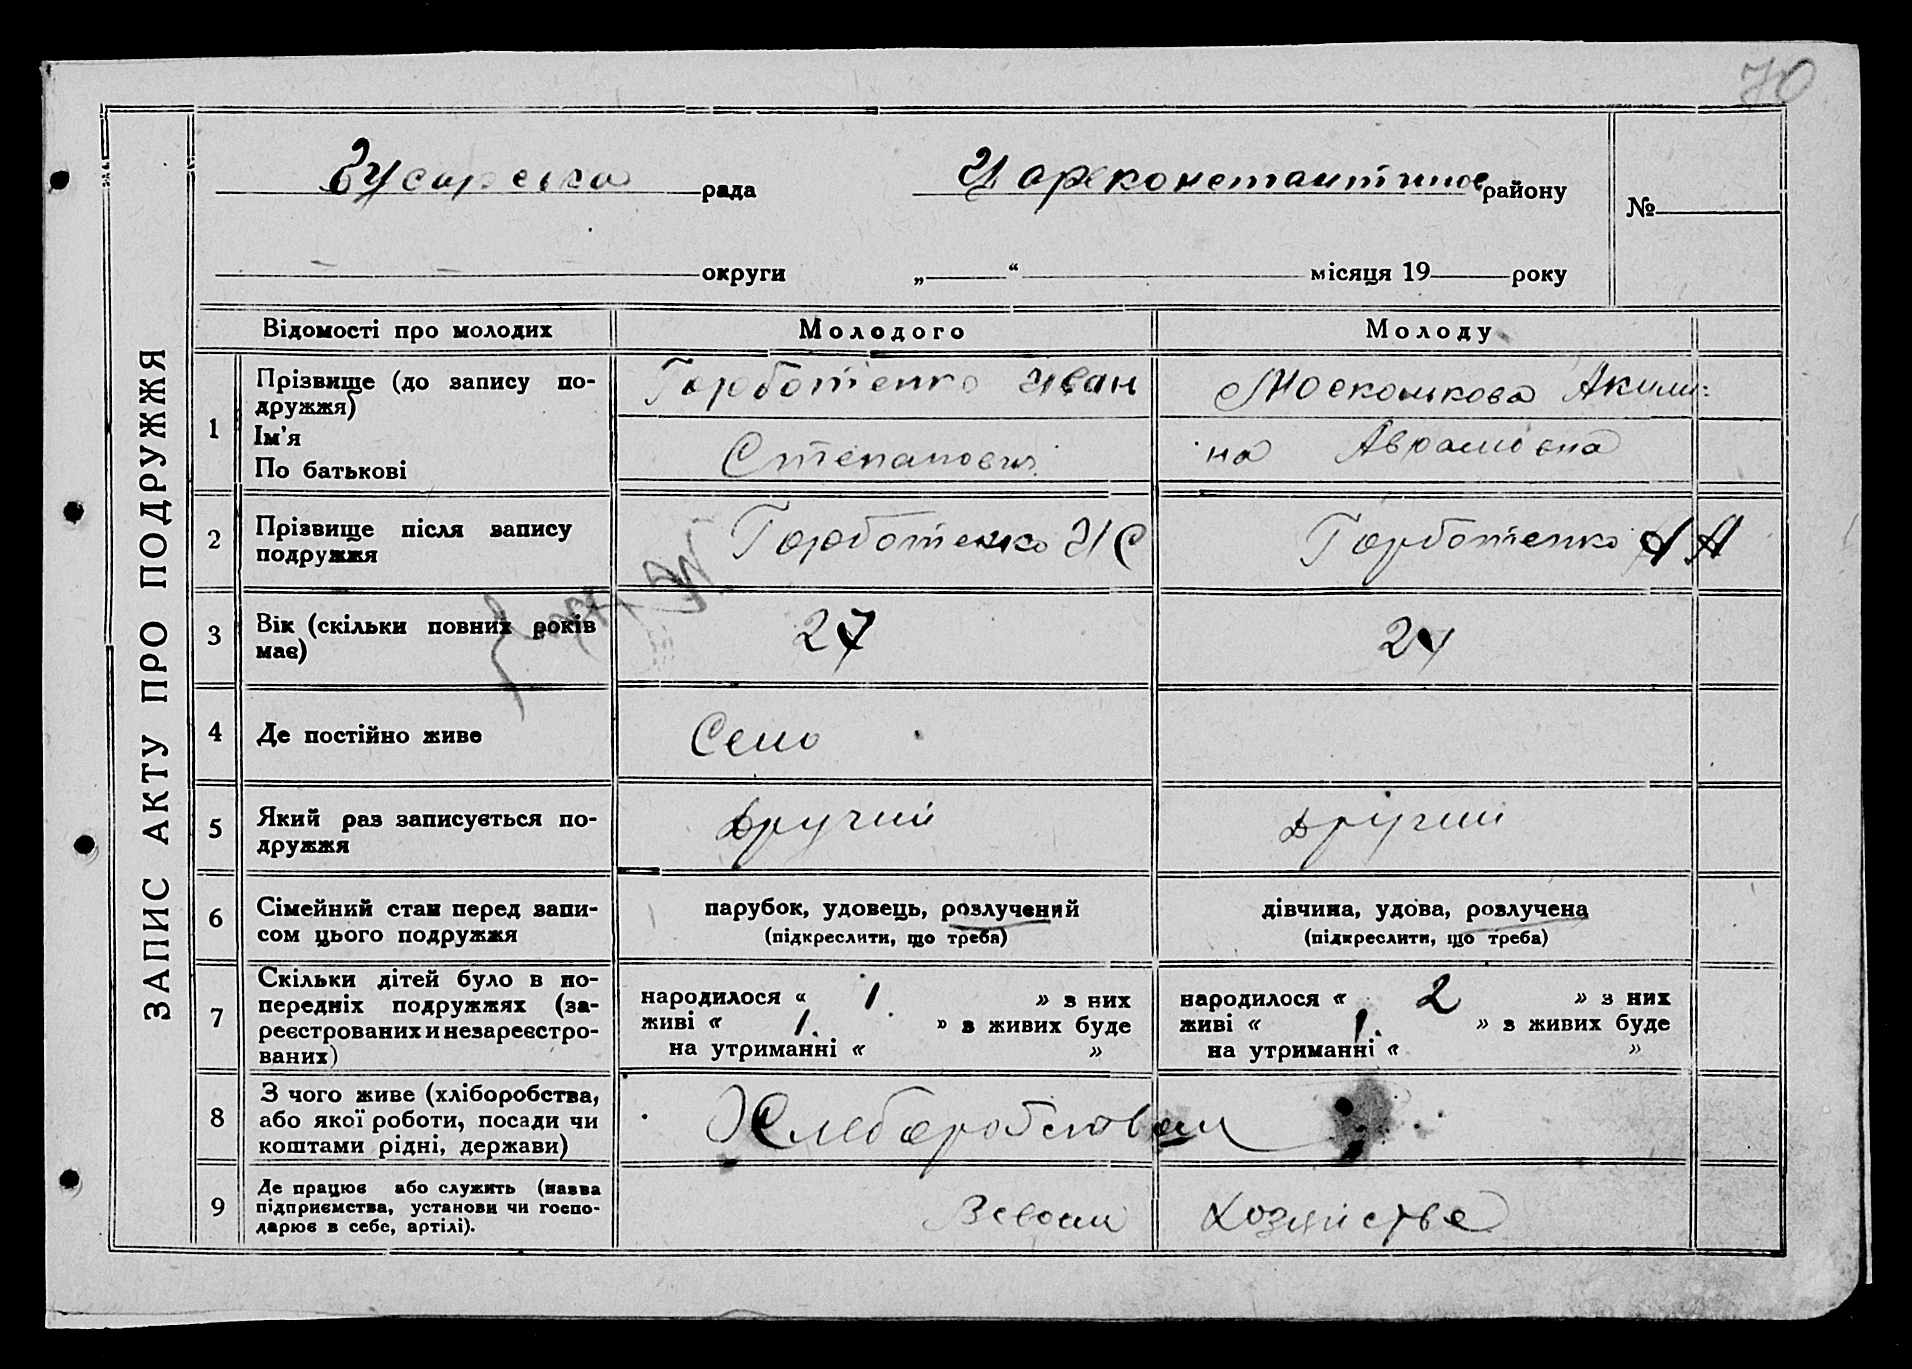 70
ЗАПИС АКТУ ПРО ПОДРУЖЖЯ
рада
Цареконстантинов району
№
округи „ “ місяця 19 року
Відомості про молодих Молодого Молоду
1 Прізвище (до запису по-
дружжя)
Ім'я
По батькові
Горботенко Иван
Степанович
Акили:
на Аврамовна
2 Прізвище після запису
подружжя
Горботенко И С
Горботенко А А
3 Вік (скільки повних років
має)
27
24
4 Де постійно живе
Село
5 Який раз записується по-
дружжя
Другий
Другий
6 Сімейний стан перед запи-
сом цього подружжя
парубок, удовець, розлучений
(підкреслити, що треба)
дівчина, удова, розлучена
(підкреслити, що треба)
7 Скільки дітей було в по-
передніх подружжях (за-
реєстрованих и незареєстро-
ваних)
народилося « 1 » з них
живі « 1. » з живих буде
на утриманні « »
народилося « 2 » з них
живі « 1. » з живих буде
на утриманні « »
8 З чого живе (хліборобства,
або якої роботи, посади чи
коштами рідні, держави)
Хлеборобством
9 Де працює або служить (назва
підприємства, установи чи госпо-
дарює в себе, артілі).
Всвоем Хозяйстве